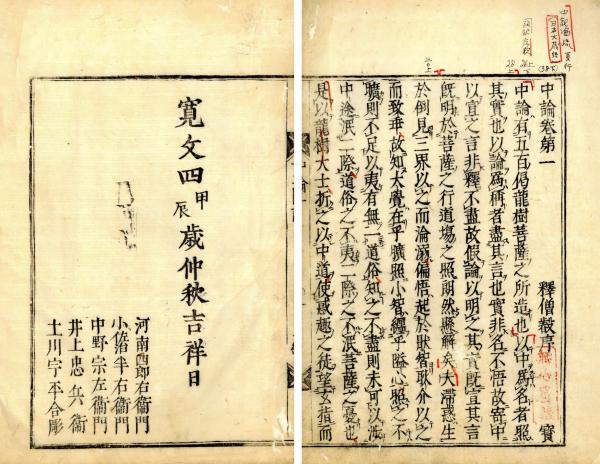 中論卷第一　釋僧叡序
中論有五百偈龍樹菩薩之所造也以中爲名者照
其實也以論爲稱者盡其言也實非名不悟故寄中
以宣之言非釋不盡故假論以明之其實既宣其言
既明於菩薩之行道場之照朗然懸解矣夫滯惑生
於倒見三界以之而淪溺偏悟起於厭智耿介以之
而致乖故知大覺在乎曠照小智纏乎隘心照之不
曠則不足以夷有無一道俗知之不盡則未可以涉
中途泯二際道俗之不夷二際之不泯菩薩之憂也
是以龍樹大士折之以中道使惑趣之徒望玄指而
寛文四甲辰歳仲秋吉祥日
河南四郎右衛門
小佐治半右衛門
中野宗左衛門
井上忠兵衛
土川宇平合彫